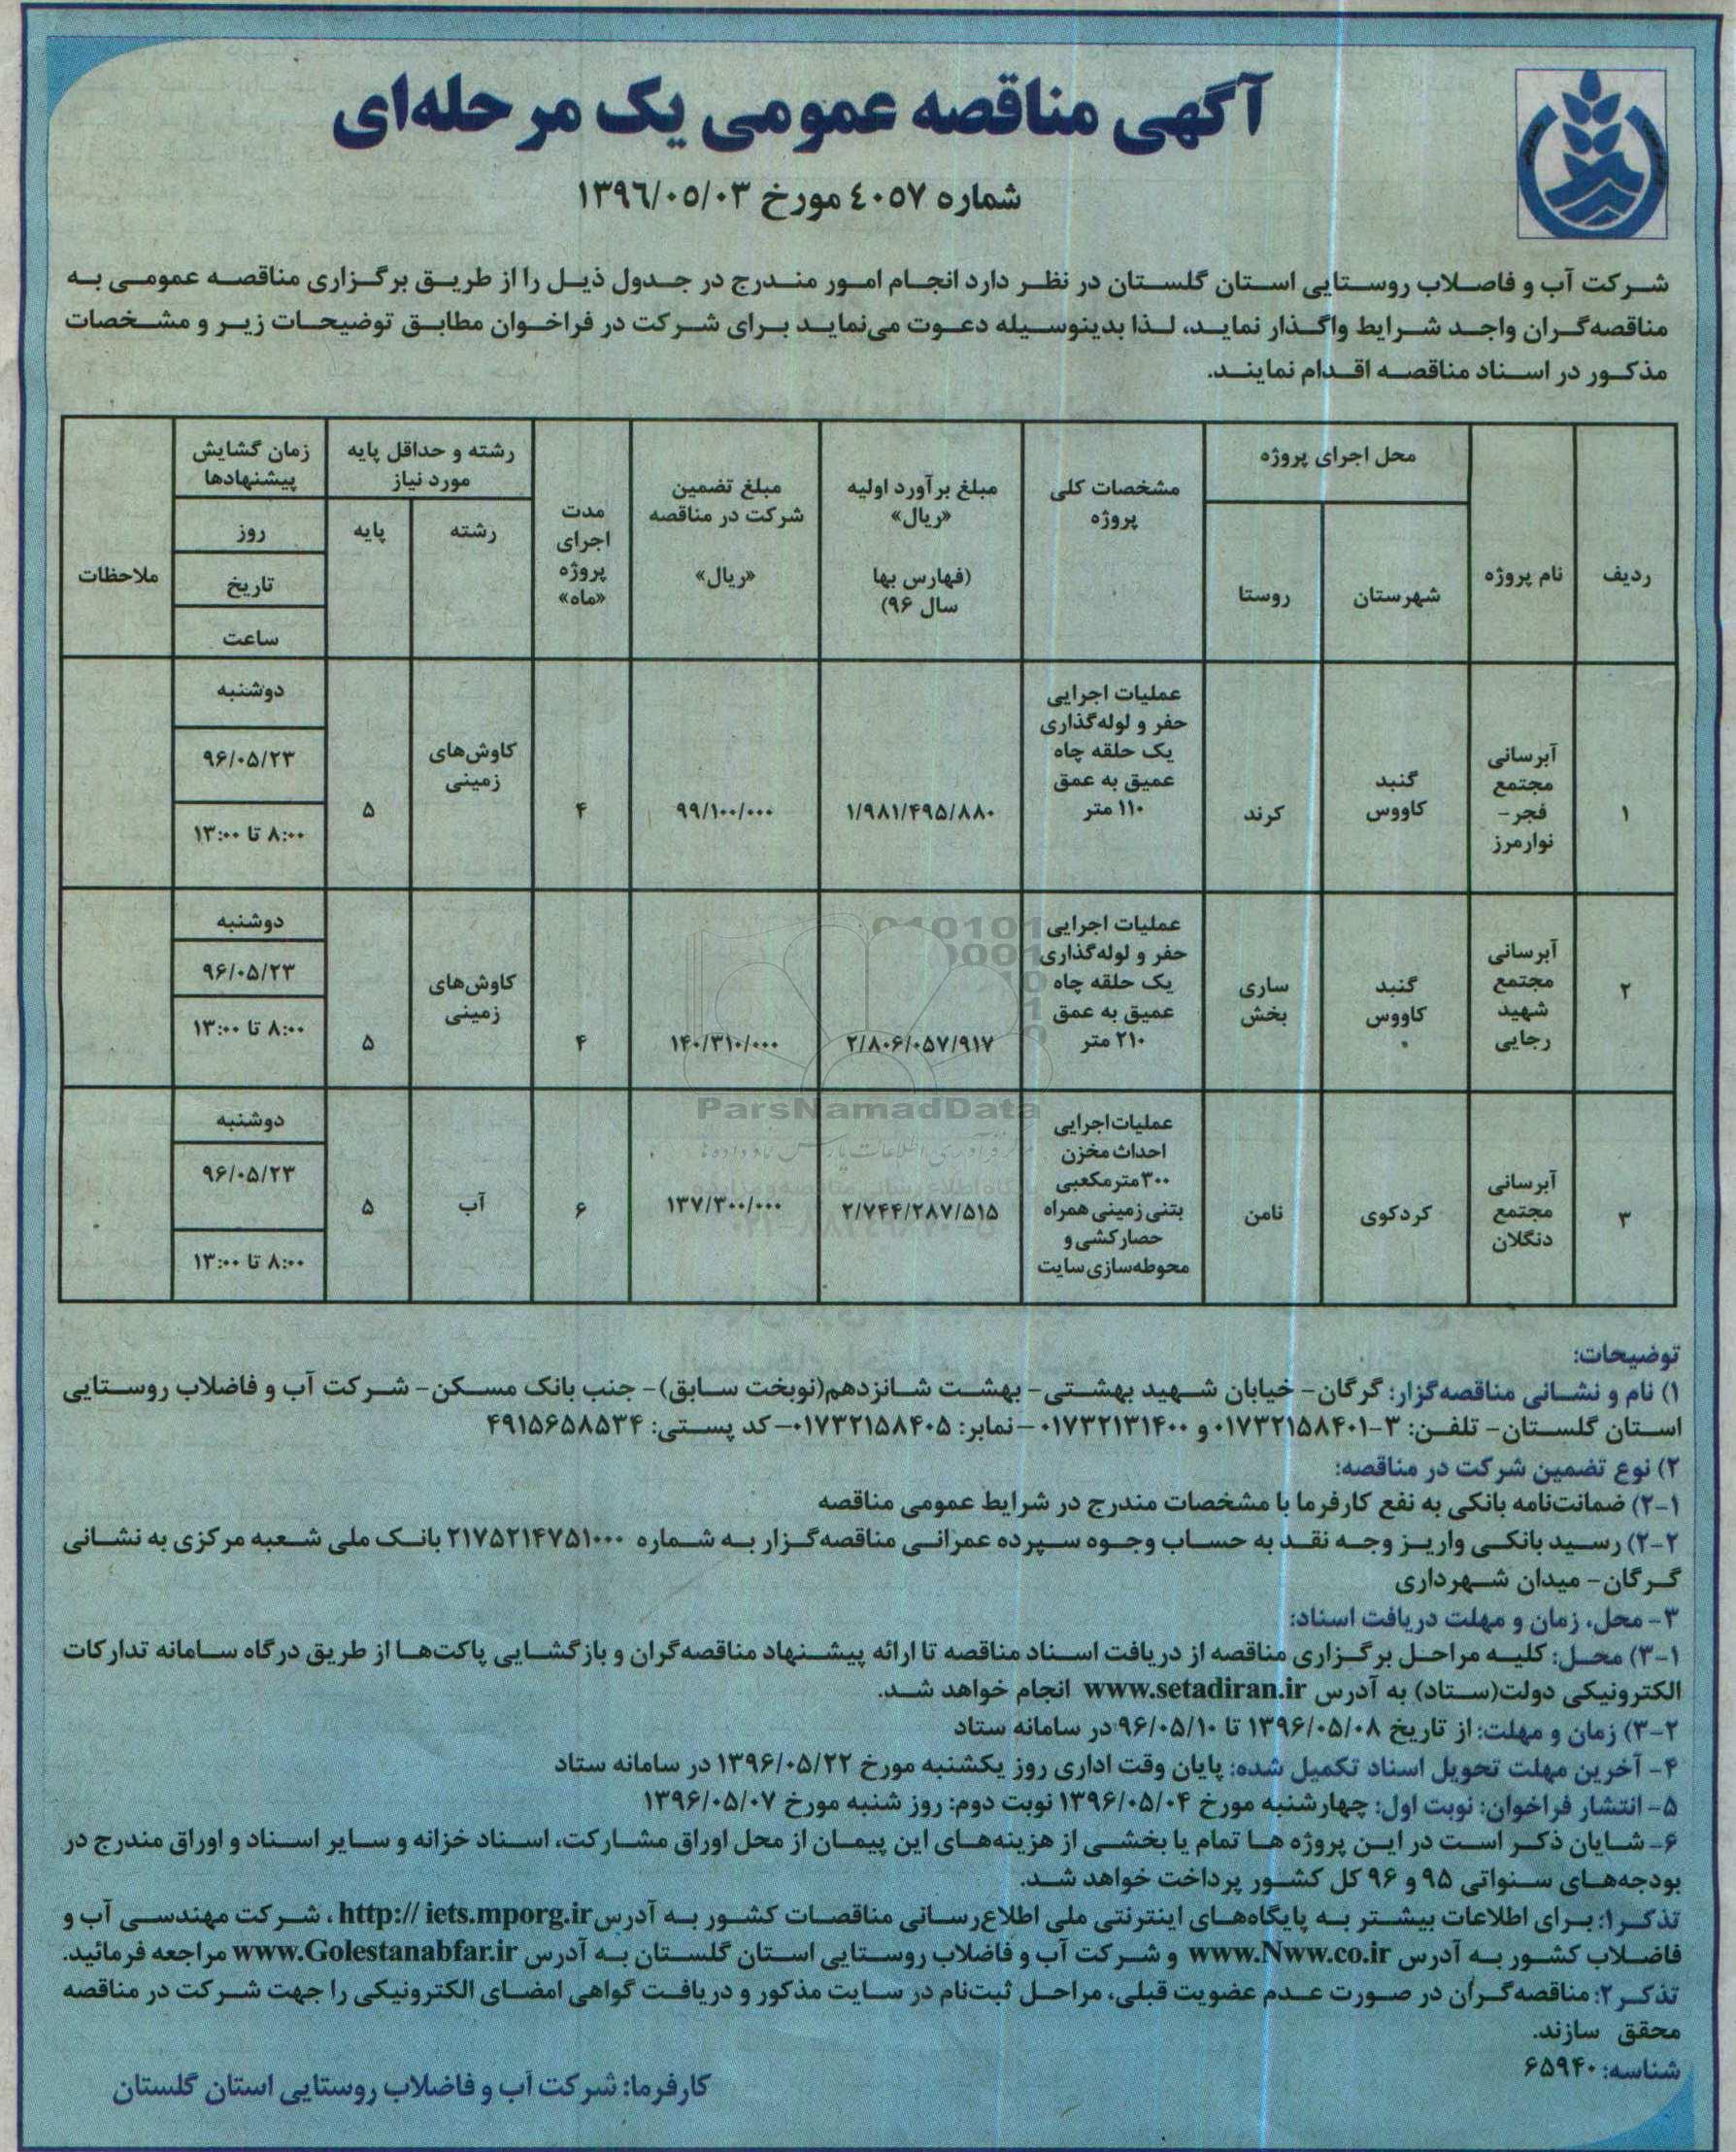 آگهی مناقصه عمومی یک مرحله‌ای
شماره ٤٠٥٧ مورخ ١٣٩٦/٠٥/٠٣
شرکت آب و فاصلاب روستایی استان گلستان در نظر دارد انجام امور مندرج در جدول ذیل را از طریق برگزاری مناقصه عمومی به
مناقصه‌گران واجد شرایط واگذار نماید، لذا بدینوسیله دعوت می‌نماید برای شرکت در فراخوان مطابق توضیحات زیر و مشخصات
مذکور در اسناد مناقصه اقدام نمایند.
ردیف
نام پروژه
محل اجرای پروژه
شهرستان
روستا
مشخصات کلی
پروژه
مبلغ برآورد اولیه
«ریال»
(فهارس بها
سال ۹۶)
مبلغ تضمین
شرکت در مناقصه
«ریال»
مدت
اجرای
پروژه
«ماه»
رشته و حداقل پایه
مورد نیاز
رشته
پایه
زمان گشایش
پیشنهادها
روز
تاریخ
ساعت
ملاحظات
۱
آبرسانی
مجتمع
فجر-
نوارمرز
گنبد
کاووس
کرند
عملیات اجرایی
حفر و لوله‌گذاری
یک حلقه چاه
عمیق به عمق
۱۱۰ متر
۱/۹۸۱/۴۹۵/۸۸۰
۹۹/۱۰۰/۰۰۰
۴
کاوش‌های
زمینی
۵
دوشنبه
۹۶/۰۵/۲۳
۸:۰۰ تا ۱۳:۰۰
۲
آبرسانی
مجتمع
شهید
رجایی
گنبد
کاووس
ساری
بخش
عملیات اجرایی
حفر و لوله‌گذاری
یک حلقه چاه
عمیق به عمق
۲۱۰ متر
۲/۸۰۶/۰۵۷/۹۱۷
۱۴۰/۳۱۰/۰۰۰
۴
کاوش‌های
زمینی
۵
دوشنبه
۹۶/۰۵/۲۳
۸:۰۰ تا ۱۳:۰۰
۳
آبرسانی
مجتمع
دنگلان
کردکوی
نامن
عملیات اجرایی
احداث مخزن
۳۰۰ مترمکعبی
بتنی زمینی همراه
حصارکشی و
محوطه‌سازی سایت
۲/۷۴۴/۲۸۷/۵۱۵
۱۳۷/۳۰۰/۰۰۰
۶
آب
۵
دوشنبه
۹۶/۰۵/۲۳
۸:۰۰ تا ۱۳:۰۰
ParsNamadData
توضیحات:
۱) نام و نشانی مناقصه‌گزار: گرگان- خیابان شهید بهشتی- بهشت شانزدهم(نوبخت سابق)- جنب بانک مسکن- شرکت آب و فاضلاب روستایی
استان گلستان- تلفن: ۳-۰۱۷۳۲۱۵۸۴۰۱ و ۰۱۷۳۲۱۳۱۴۰۰ -نمابر: ۰۱۷۳۲۱۵۸۴۰۵- کد پستی: ۴۹۱۵۶۵۸۵۳۴
۲) نوع تضمین شرکت در مناقصه:
۲-۱) ضمانت‌نامه بانکی به نفع کارفرما با مشخصات مندرج در شرایط عمومی مناقصه
۲-۲) رسید بانکی واریز وجه نقد به حساب وجوه سپرده عمرانی مناقصه‌گزار به شماره ۲۱۷۵۲۱۴۷۵۱۰۰۰ بانک ملی شعبه مرکزی به نشانی
گرگان- میدان شهرداری
۳- محل، زمان و مهلت دریافت اسناد:
۳-۱) محل: کلیه مراحل برگزاری مناقصه از دریافت اسناد مناقصه تا ارائه پیشنهاد مناقصه‌گران و بازگشایی پاکت‌ها از طریق درگاه سامانه تدارکات
الکترونیکی دولت(ستاد) به آدرس www.setadiran.ir انجام خواهد شد.
۳-۲) زمان و مهلت: از تاریخ ۱۳۹۶/۰۵/۰۸ تا ۹۶/۰۵/۱۰ در سامانه ستاد
۴- آخرین مهلت تحویل اسناد تکمیل شده: پایان وقت اداری روز یکشنبه مورخ ۱۳۹۶/۰۵/۲۲ در سامانه ستاد
۵- انتشار فراخوان: نوبت اول: چهارشنبه مورخ ۱۳۹۶/۰۵/۰۴ نوبت دوم: روز شنبه مورخ ۱۳۹۶/۰۵/۰۷
۶- شایان ذکر است در این پروژه ها تمام یا بخشی از هزینه‌های این پیمان از محل اوراق مشارکت، اسناد خزانه و سایر اسناد و اوراق مندرج در
بودجه‌های سنواتی ۹۵ و ۹۶ کل کشور پرداخت خواهد شد.
تذکر۱: برای اطلاعات بیشتر به پایگاه‌های اینترنتی ملی اطلاع‌رسانی مناقصات کشور به آدرس http:// iets.mporg.ir، شرکت مهندسی آب و
فاضلاب کشور به آدرس www.Nww.co.ir و شرکت آب و فاضلاب روستایی استان گلستان به آدرس www.Golestanabfar.ir مراجعه فرمائید.
تذکر۲: مناقصه‌گران در صورت عدم عضویت قبلی، مراحل ثبت‌نام در سایت مذکور و دریافت گواهی امضای الکترونیکی را جهت شرکت در مناقصه
محقق سازند.
شناسه: ۶۵۹۴۰
کارفرما: شرکت آب و فاضلاب روستایی استان گلستان